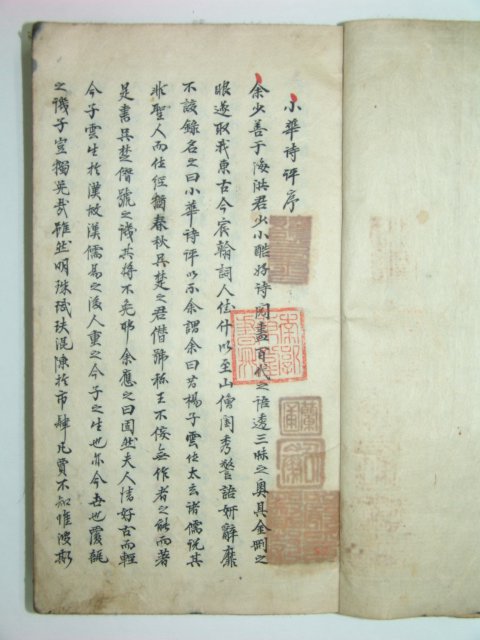 小華詩評序
余少善于海洪君少小酷好詩閱盡百代之語透三昧之奧具金剛之
眼遂取我東古今宸翰詞人佳什以至山僧閨秀警語妍辭靡
不該錄名之曰小華詩評以示余謂余曰昔楊子雲作太玄諸儒譏其
非聖人而作經猶春秋吳楚之君僭號稱王不侫無作者之能而著
是書吳楚僭號之譏其將不免耶余應之曰固然夫人情好古而輕
今子雲生於漢故漢儒為之後人重之今子之生也亦今世也覆瓿
之譏子豈獨免哉雖然明珠珷玞混陳於市肆凡賈不知惟波斯